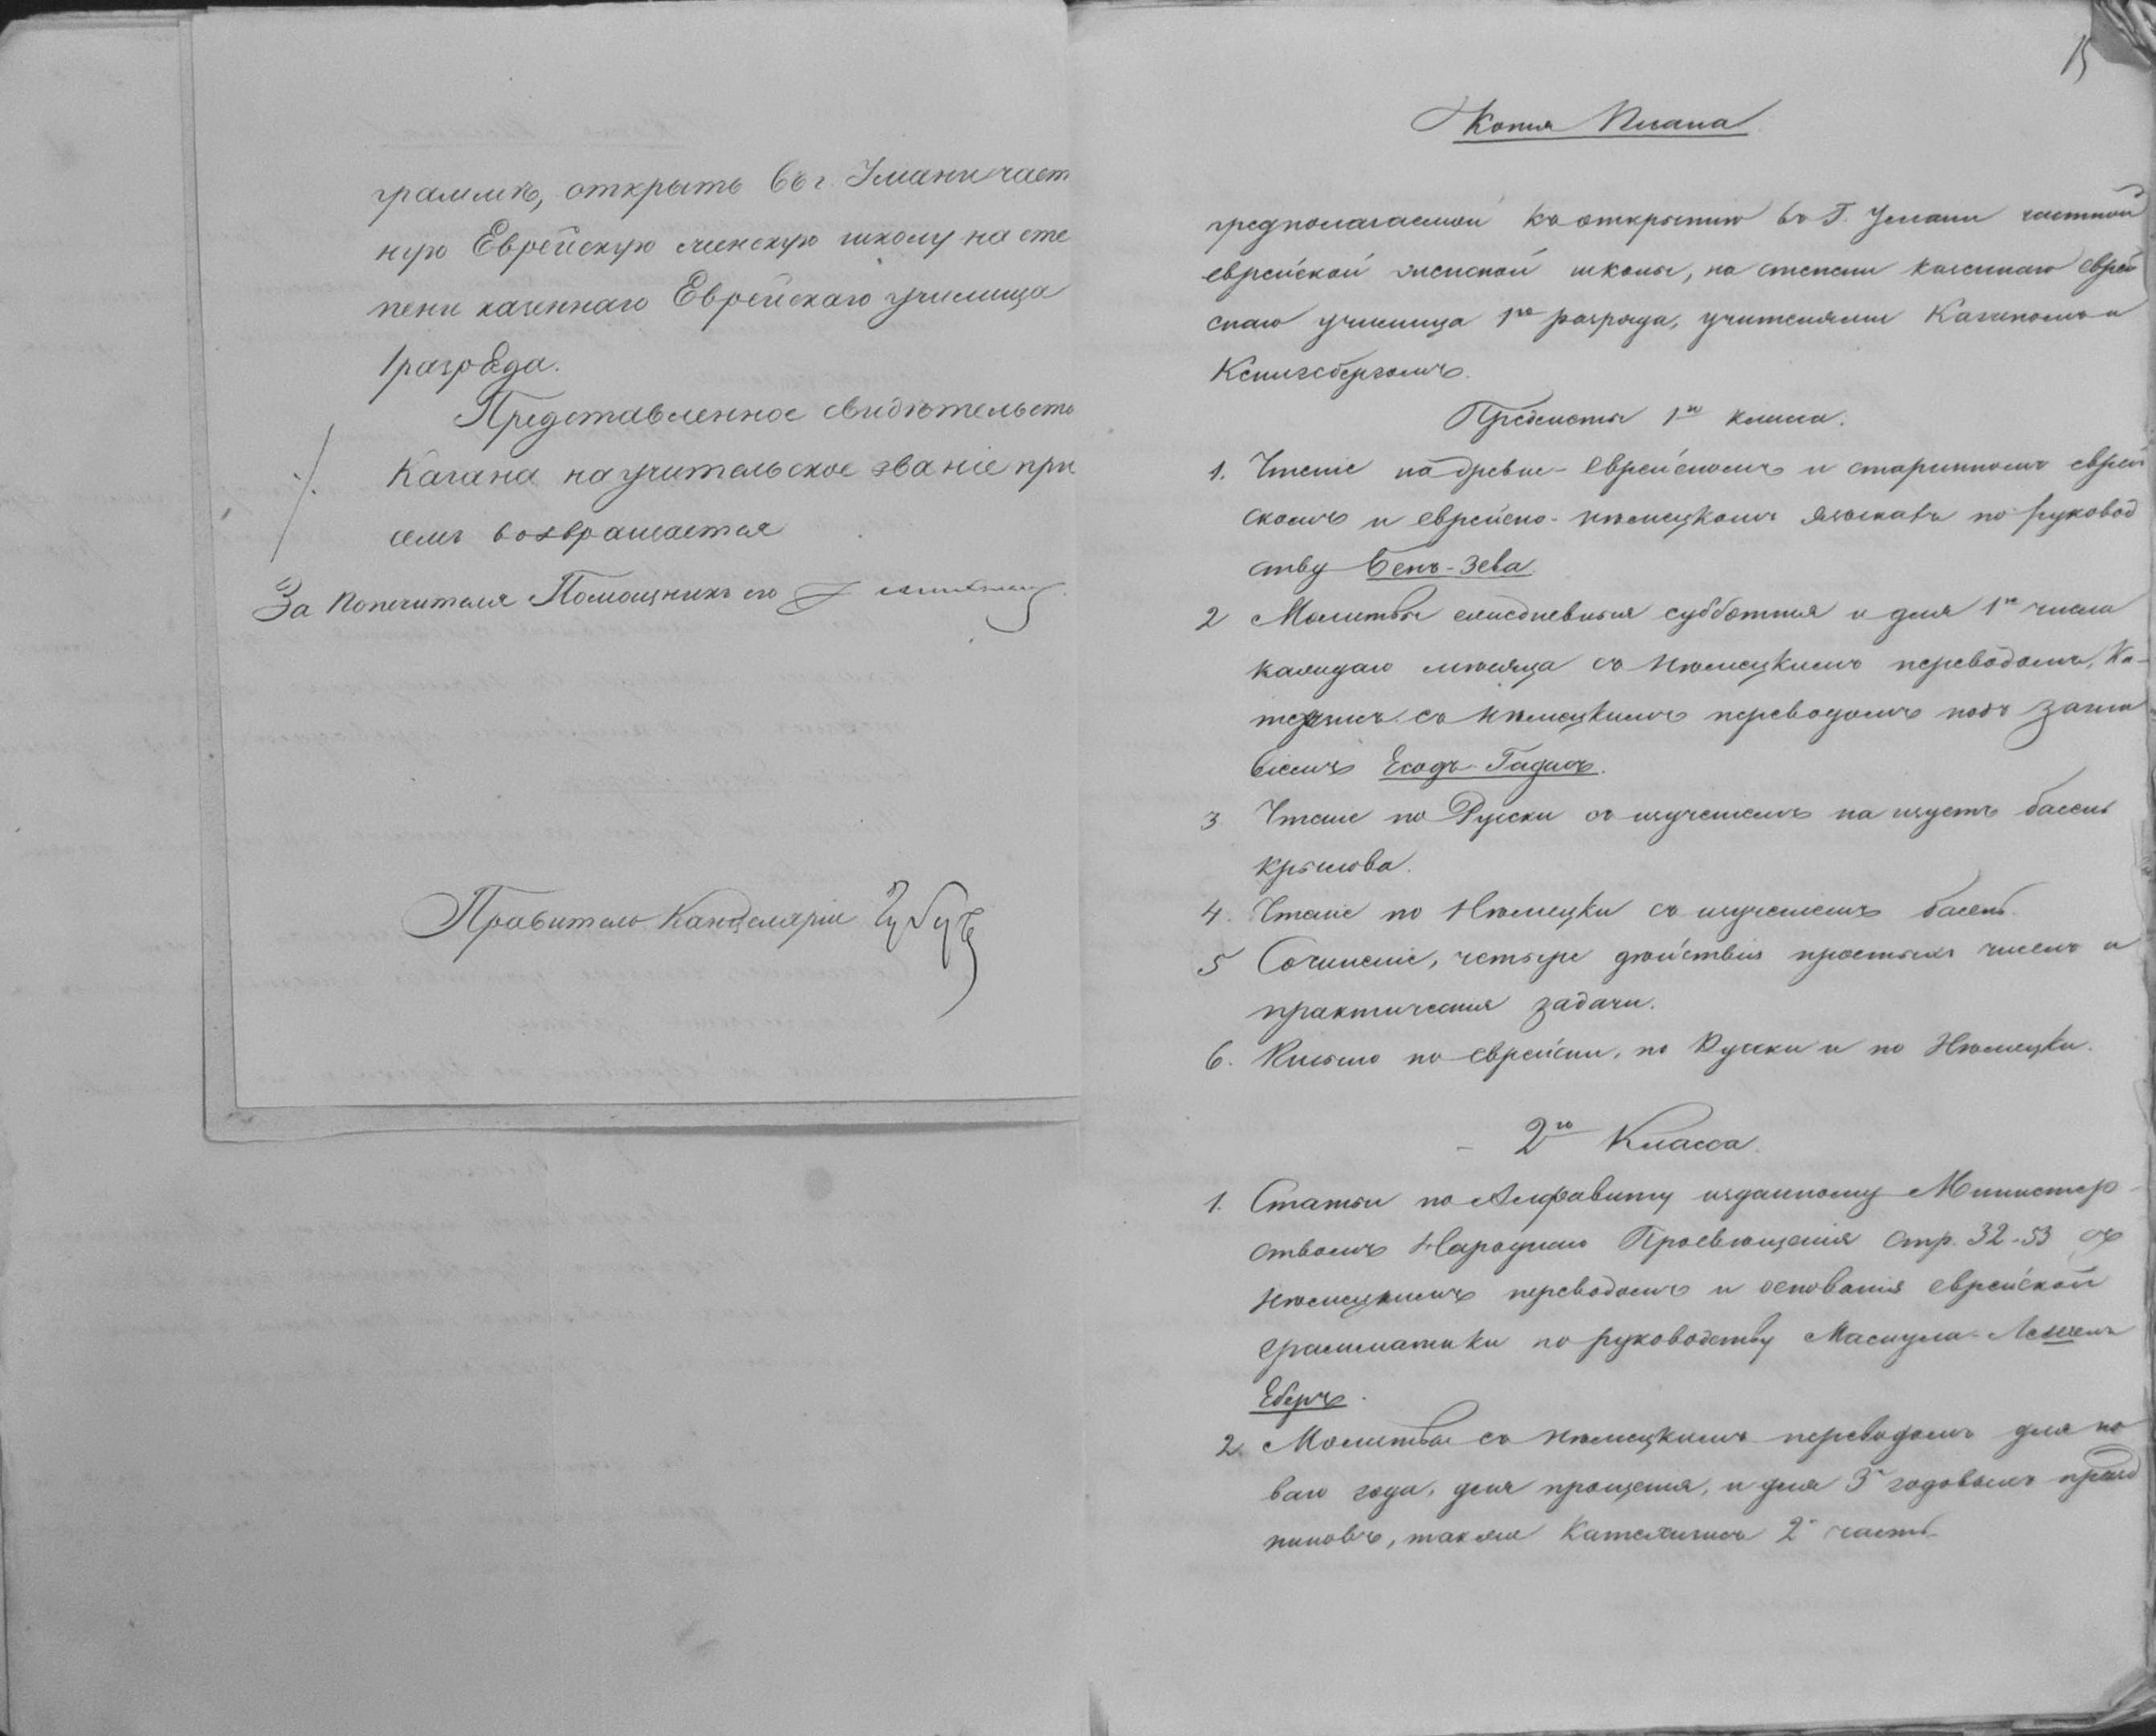 граммѣ, открыть въ г. Умани част
ную Еврейскую женскую школу на сте
пени казеннаго Еврейскаго училища
1 разряда.
Представленное свидѣтельство
Кагана на учительское званіе при
семъ возвращается
За Попечителя Помощникъ его
Правитель Канцеляріи
15
Копія Плана
предполагаемой къ открытию въ Г. Умани частной
еврейской женской школы, на степени казеннаго еврей
скаго училища 1го разряда, учителями Каганомъ и
Кенигсбергомъ.
Предметы 1го класса.
1. Чтеніе на древне-еврейскомъ и старинномъ еврей
скомъ и еврейско-нѣмецкомъ языкахъ по руковод
ству Бенъ-Зева
2 Молитвы ежедневныя субботнія и для 1го числа
каждаго мѣсяца съ нѣмецкимъ переводомъ, Ка-
техизисъ съ нѣмецкимъ переводомъ подъ загла
віемъ Есодъ-Гадасъ.
3 Чтеніе по Русски съ изученіемъ на изустъ басень
Крылова.
4. Чтеніе по Нѣмецки съ изученіемъ басень.
5 Сочиненіе, четыре дѣйствія простыхъ чиселъ и
практическія задачи.
6. Письмо по еврейски, по Русски и по Нѣмецки.
2го Класса
1. Статьи по Алфавиту изданному Министер-
ствомъ Народнаго Просвѣщенія стр. 32-53 съ
нѣмецкимъ переводомъ и основанія еврейской
грамматики по руководству Маслула-Лешенъ
Еберъ.
2. Молитвы съ нѣмецкимъ переводомъ для но
ваго года, дня прощенія, и для 3х годовыхъ празд
никовъ, также Катехизисъ 2я часть